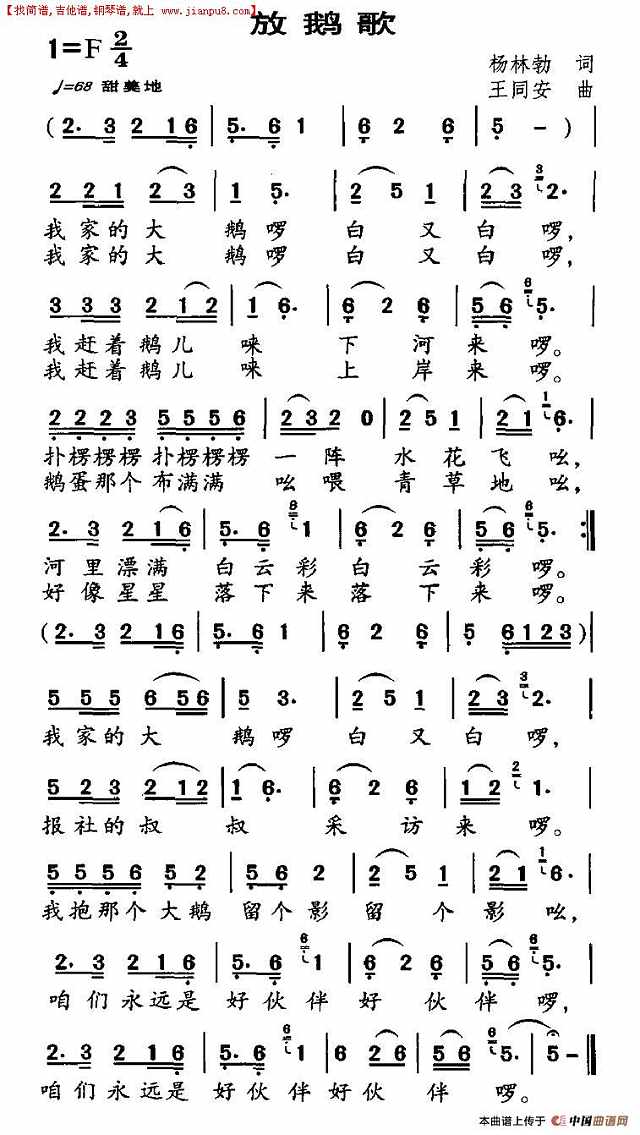 【找简谱,吉他谱,钢琴谱,就上 www.jianpu8.com】
放鹅歌
1=F 2/4
杨林勃 词
♩=68 甜美地
王同安 曲
(2. 3 2 1 6 | 5. 6 1 | 6 2 6 | 5 - )|
2 2 1 2 3 | 1 5. | 2 5 1 | 2 3 3 2. |
我家的大 鹅啰 白又白啰,
我家的大 鹅啰 白又白啰,
3 3 3 2 1 2 | 1 6. | 6 2 6 | 5 6 6 5. |
我赶着鹅儿 唻 下河来啰。
我赶着鹅儿 唻 上岸来啰。
2 2 2 3 5 5 5 6 | 2 3 2 0 | 2 5 1 | 2 1 1 6. |
扑楞楞楞 扑楞楞楞 一阵 水花飞吆,
鹅蛋那个 布满满 吆喂 青草地吆,
2. 3 2 1 6 | 5. 6 6 1 | 6 2 6 | 5 6 6 5. :|
河里漂满 白云彩白云彩啰。
好像星星 落下来落下来啰。
(2. 3 2 1 6 | 5. 6 1 | 6 2 6 | 5 6 1 2 3)|
5 5 5 6 5 6 | 5 3. | 2 5 1 | 2 3 3 2. |
我家的大 鹅啰 白又白啰,
5 2 3 2 1 2 | 1 6. | 6 2 6 | 1 2 2 1. |
报社的叔 叔 采访来啰。
5 5 5 6 5 2 | 5 6 2 | 2 5 1 | 2 1 1 6. |
我抱那个大鹅 留个影留个影吆,
2. 3 2 1 6 | 5. 6 6 1 | 6 2 6 | 5 6 6 5. |
咱们永远是 好伙伴好伙伴啰,
2. 3 2 1 6 | 5. 6 6 1 | 6 2 6 | 5 6 6 5 | 5 - ‖
咱们永远是 好伙伴好伙伴啰。
本曲谱上传于 中国曲谱网